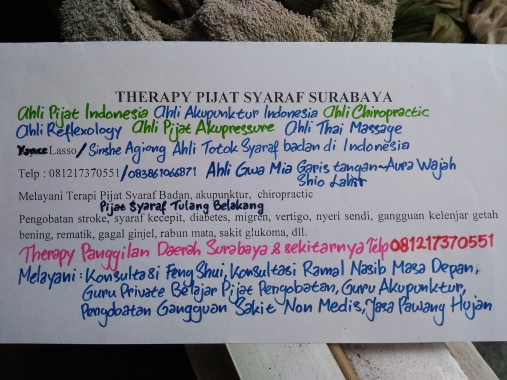 THERAPY PIJAT SYARAF SURABAYA
Ahli Pijat Indonesia Ahli Akupunktur Indonesia Ahli Chiropractic
Ahli Reflexology Ahli Pijat Akupressure Ahli Thai Massage
Lasso/Sinshe Agiong Ahli Totok Syaraf badan di Indonesia
Telp : 081217370551/083861066871 Ahli Gwa Mia Garis tangan-Aura Wajah
Shio Lahir
Melayani Terapi Pijat Syaraf Badan, akupunktur, chiropractic
Pijat Syaraf Tulang Belakang
Pengobatan stroke, syaraf kecepit, diabetes, migren, vertigo, nyeri sendi, gangguan kelenjar getah
bening, rematik, gagal ginjel, rabun mata, sakit glukoma, dll.
Therapy Panggilan Daerah Surabaya & sekitarnya Telp 081217370551
Melayani : Konsultasi Feng Shui, Konsultasi Ramal Nasib Masa Depan,
Guru Private Belajar Pijat Pengobatan, Guru Akupunktur,
Pengobatan Gangguan Sakit Non Medis, Jasa Pawang Hujan